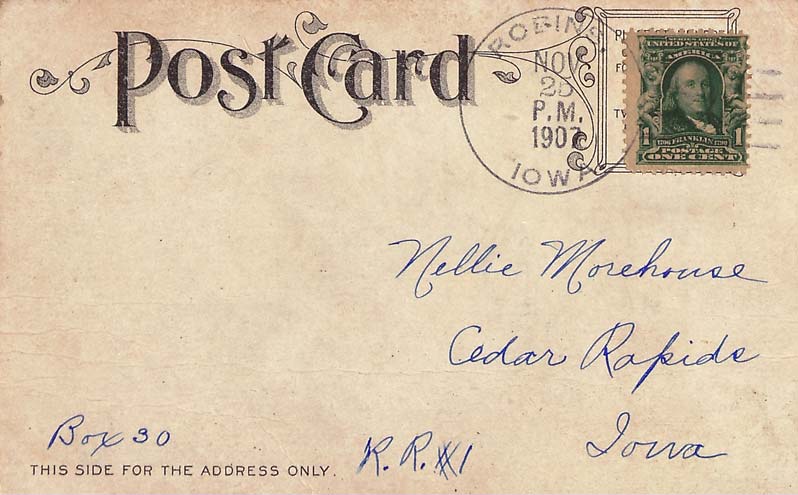 Post Card
ROBINS
NOV
P.M.
1907
IOWA
SERIES 1902
UNITED STATES OF
AMERICA
1 1706 FRANKLIN 1790 1
POSTAGE
ONE CENT
Nellie Morehouse
Cedar Rapids
Iowa
Box 30
R.R.#1
THIS SIDE FOR THE ADDRESS ONLY.